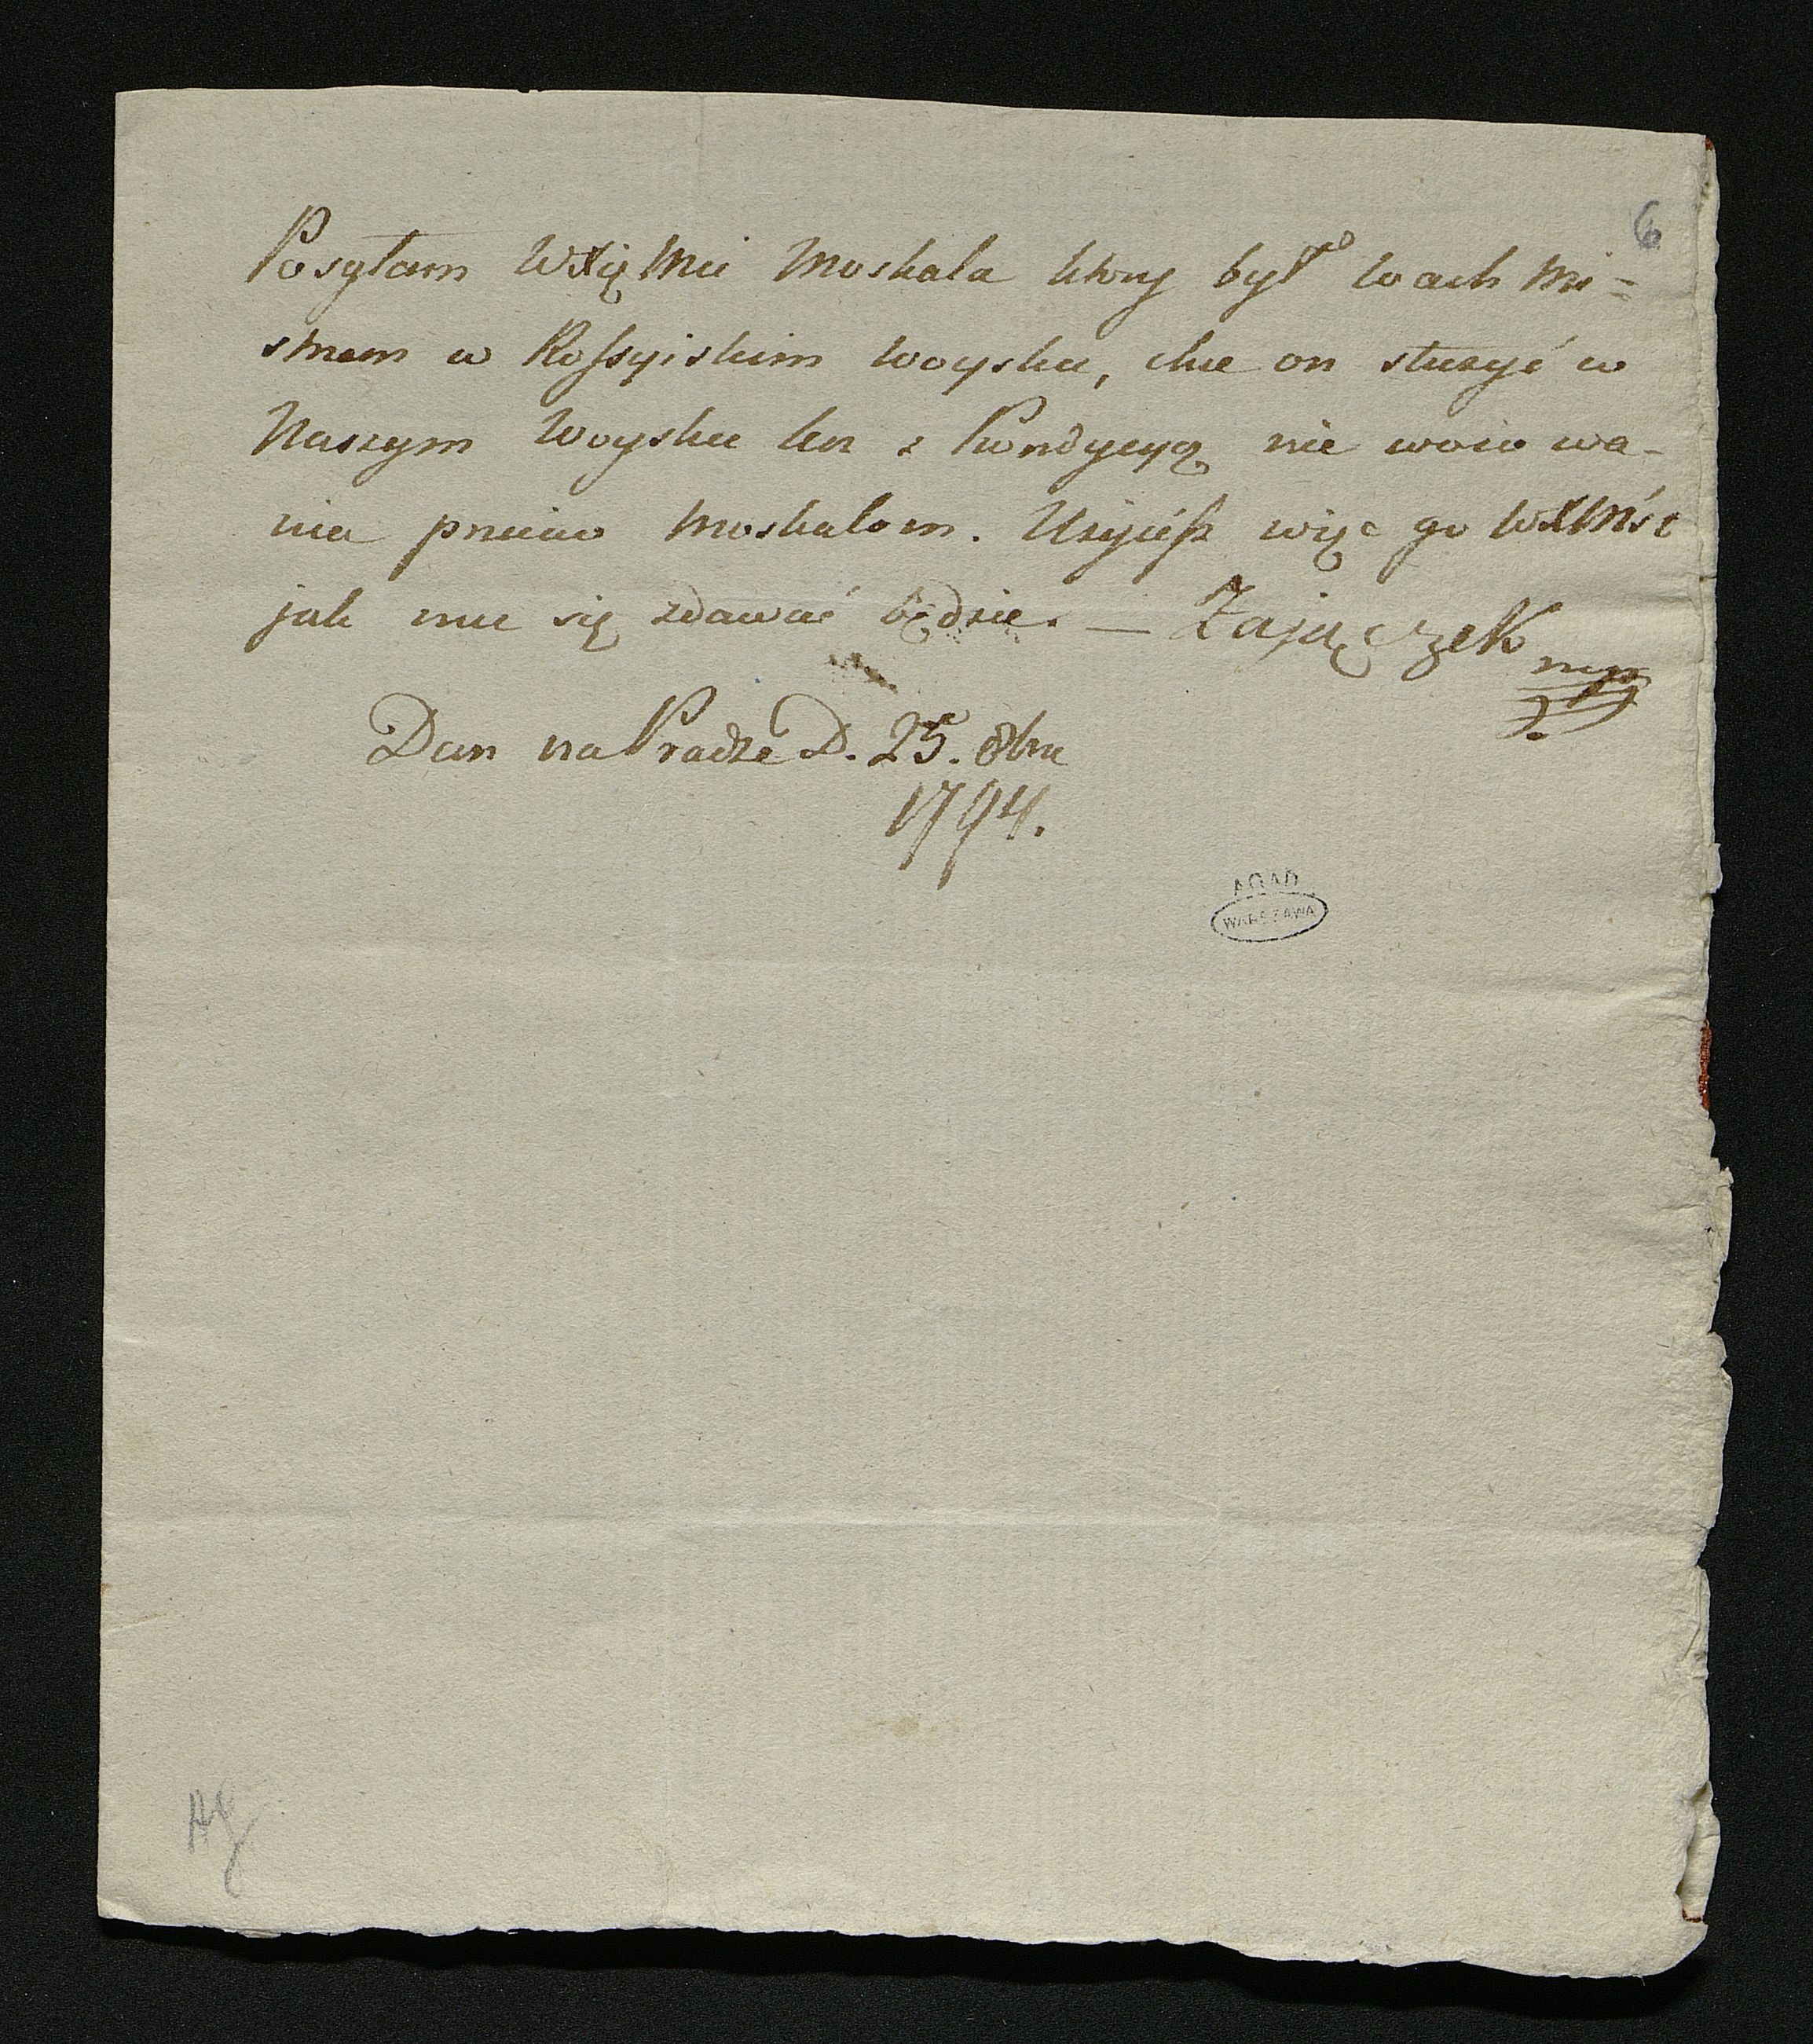 6
Posyłam WXięMci Moskala ktory był Wach Mi=
strzem w Rossyiskim Woysku, chce on służyć w
Naszym Woysku lecz z Kondycyą nie woio wa-
nia przeciw Moskalom. Użyiesz więc go WXMść
jak mu się zdawać będzie. — Zajączek
mp
Dan na Pradze D. 25. 8bra
1794.
AGAD
WARSZAWA